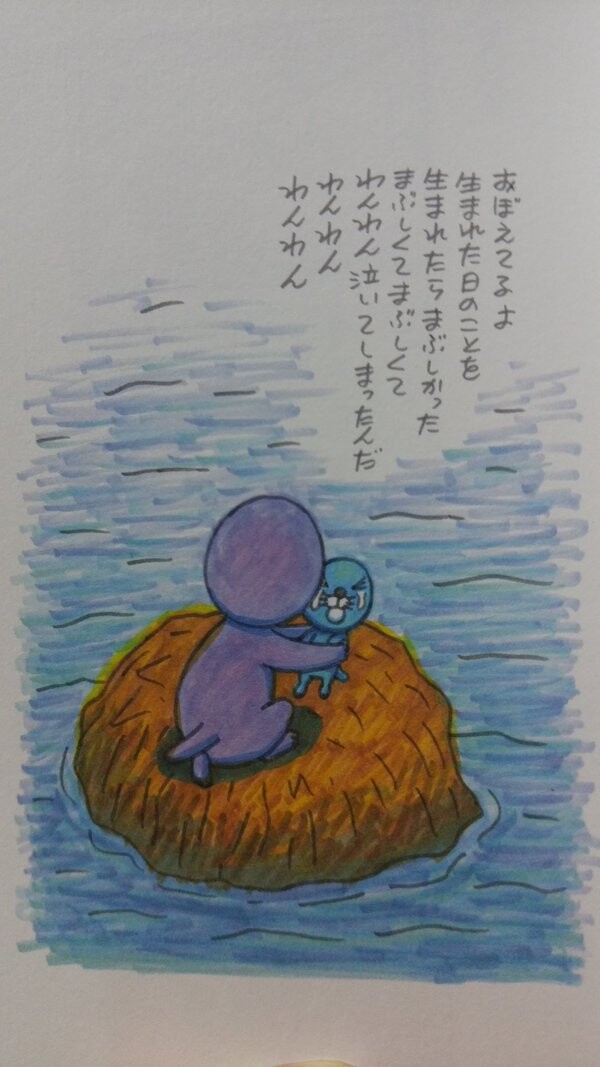 おぼえてるよ
生まれた日のことを
生まれたらまぶしかった
まぶしくてまぶしくて
わんわん泣いてしまったんだ
わんわん
わんわん